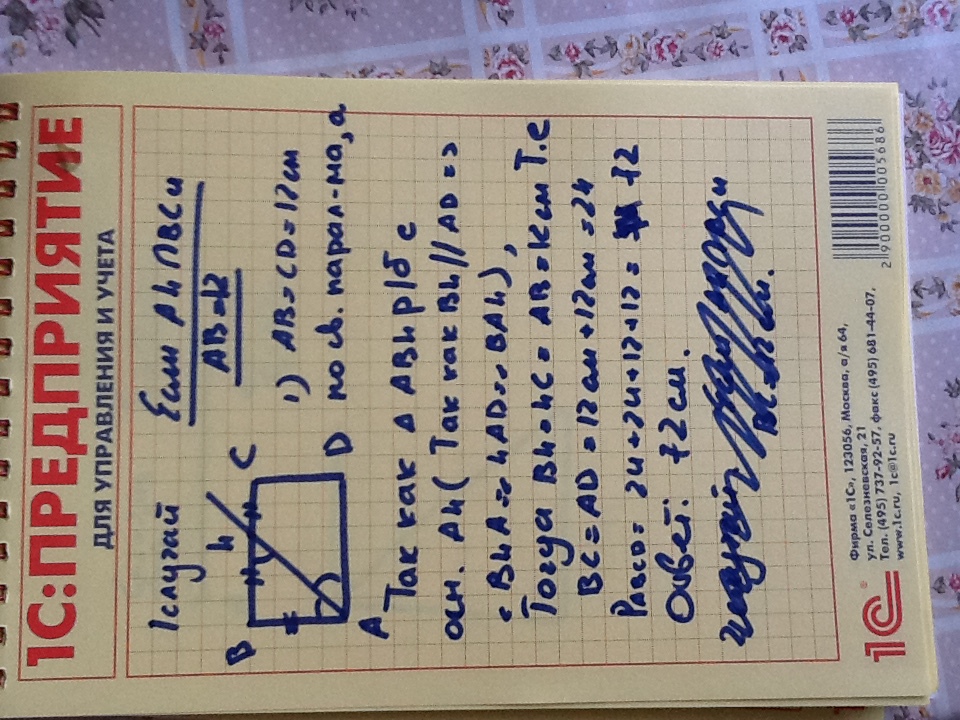 1С:ПРЕДПРИЯТИЕ
ДЛЯ УПРАВЛЕНИЯ И УЧЕТА
1случай
Если Ah ПВСи
AB=12
B h C
A D
1) AB=CD=12см
по св. парал-ма, а
Так как Δ ABh р/б с
осн. Ah (Так как Bh//AD =>
<BhA= <hAD=<BAh),
Тогда Bh=hC=AB=Kсм Т.е
BC=AD=12см+12см=24
PABCD=24+24+12+12= 72
Ответ: 72см.
2900000005686
1С
Фирма «1С», 123056, Москва, а/я 64,
ул. Селезневская, 21
Тел. (495) 737-92-57, факс (495) 681-44-07,
www.1c.ru, 1c@1c.ru